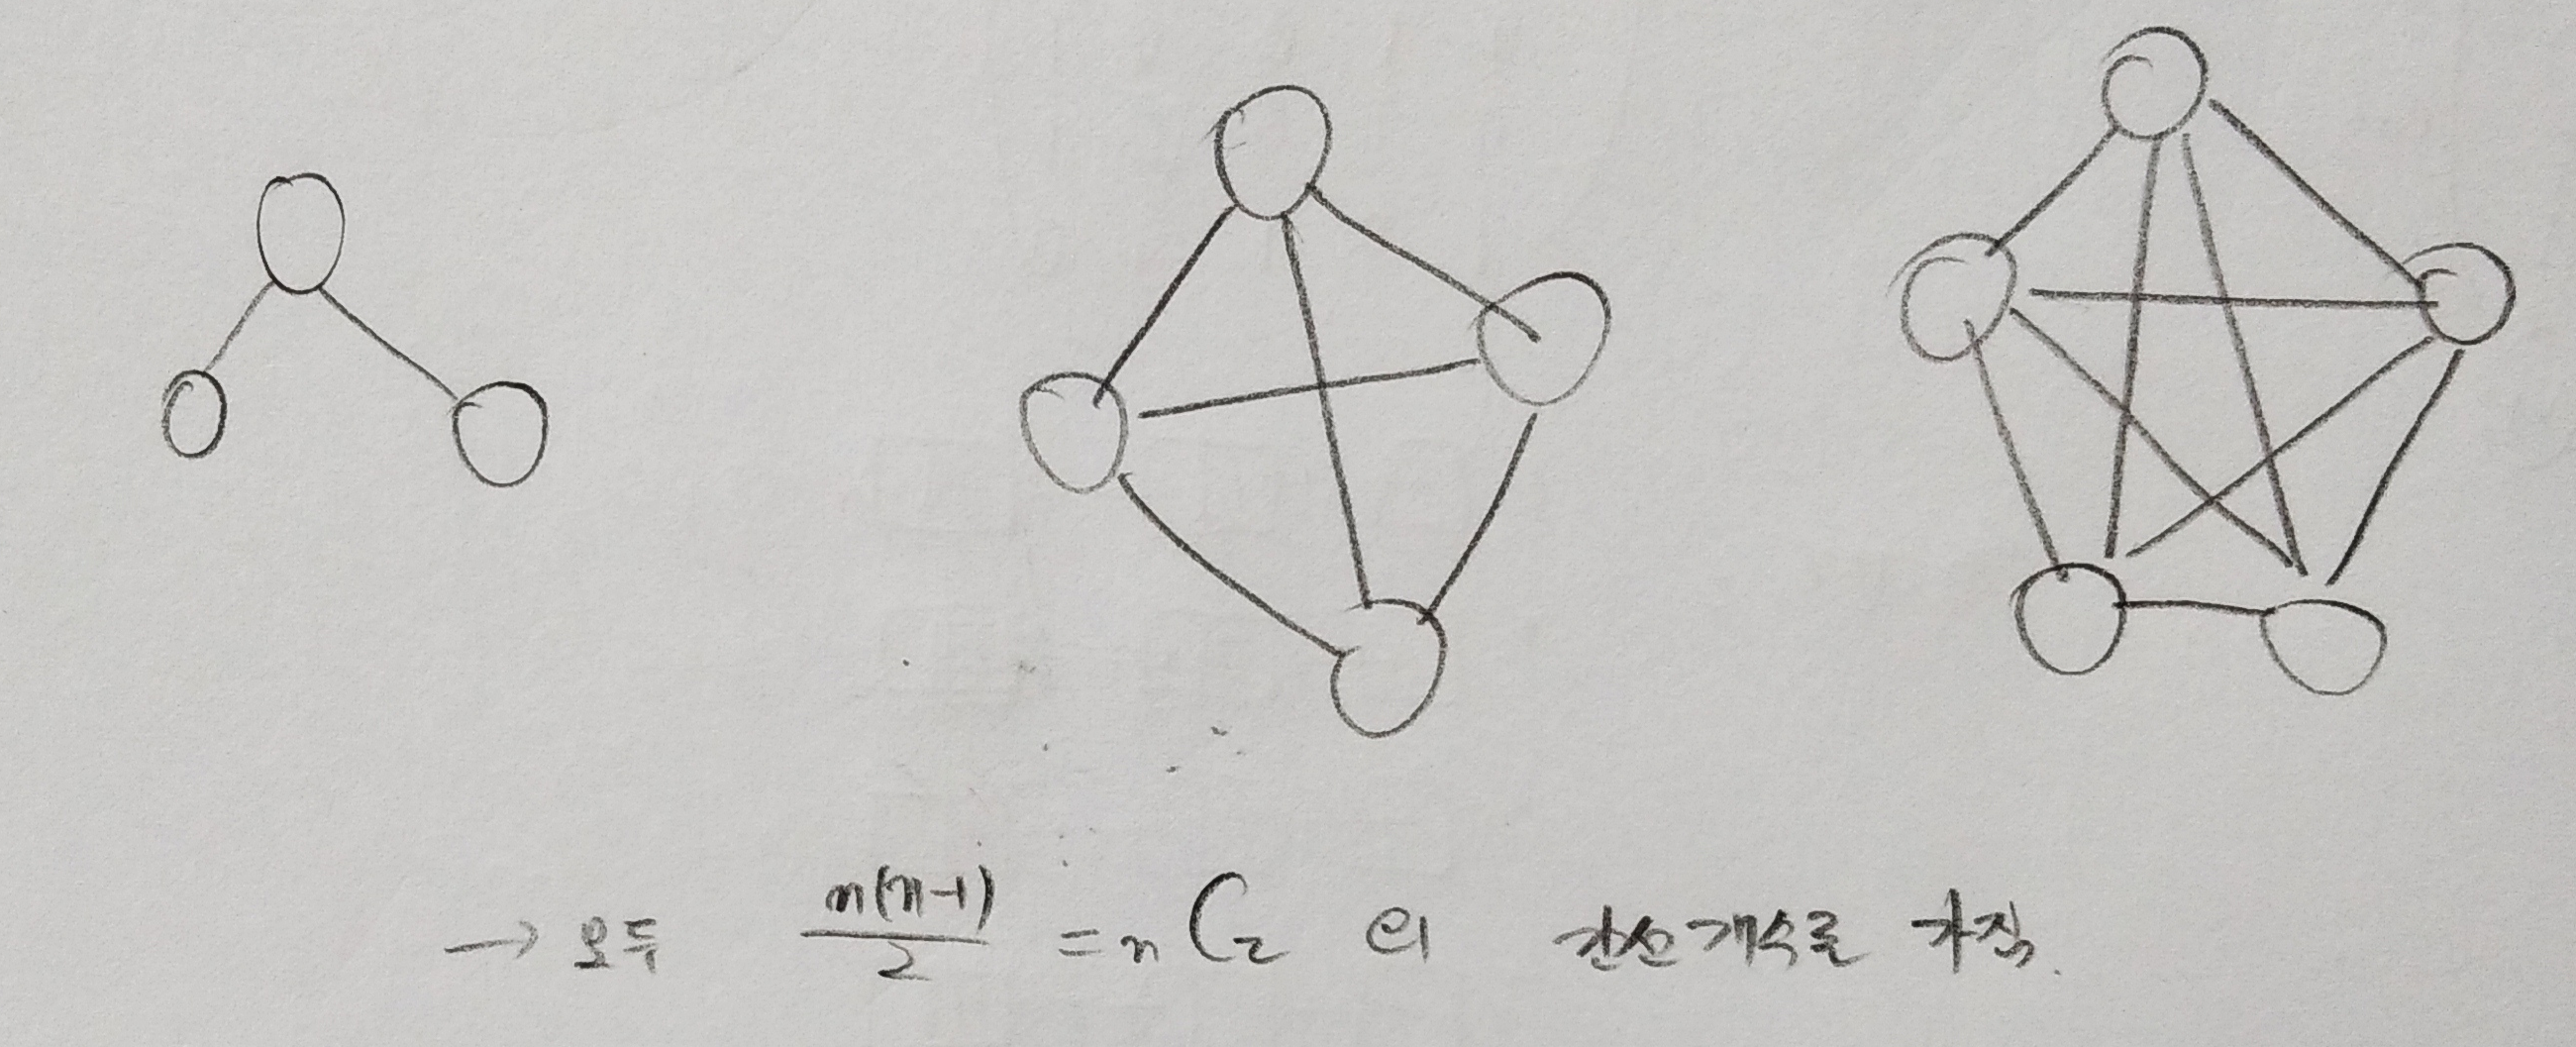 → 모두 n(n-1)/2 = nC2 의 간선개수를 가짐.